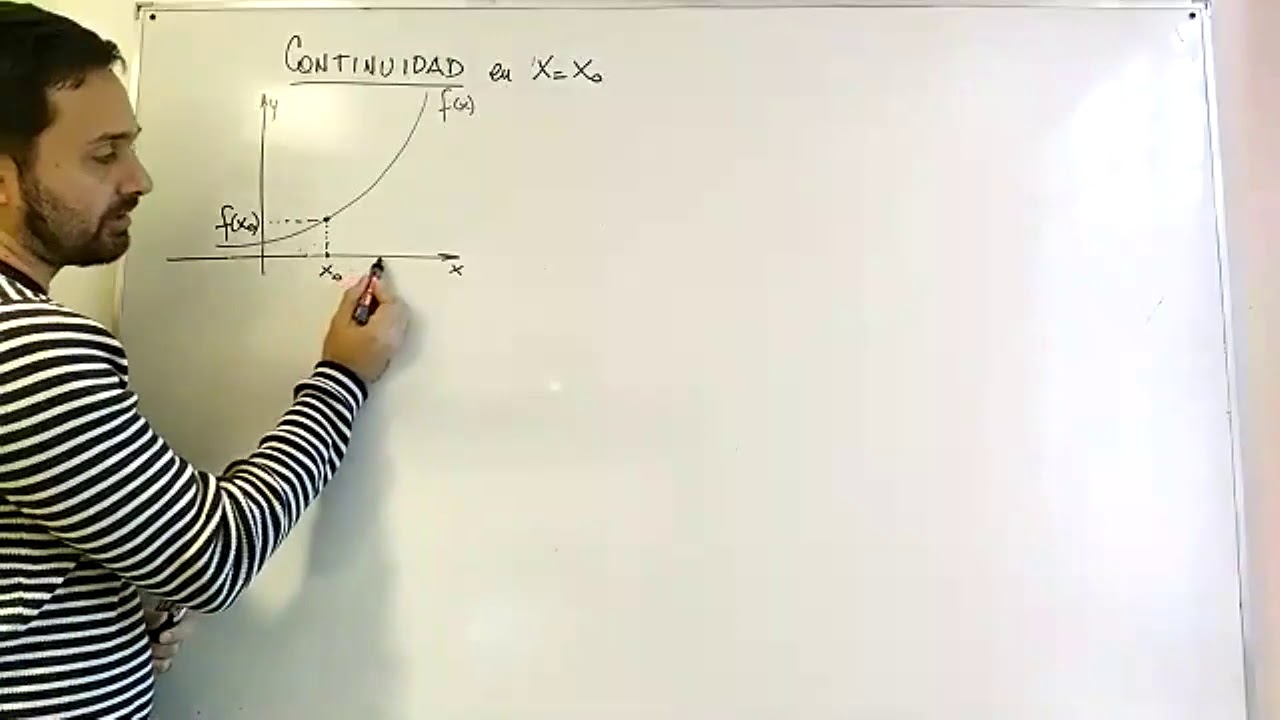 CONTINUIDAD en X=X₀
y
f(x)
f(x₀)
x₀
x